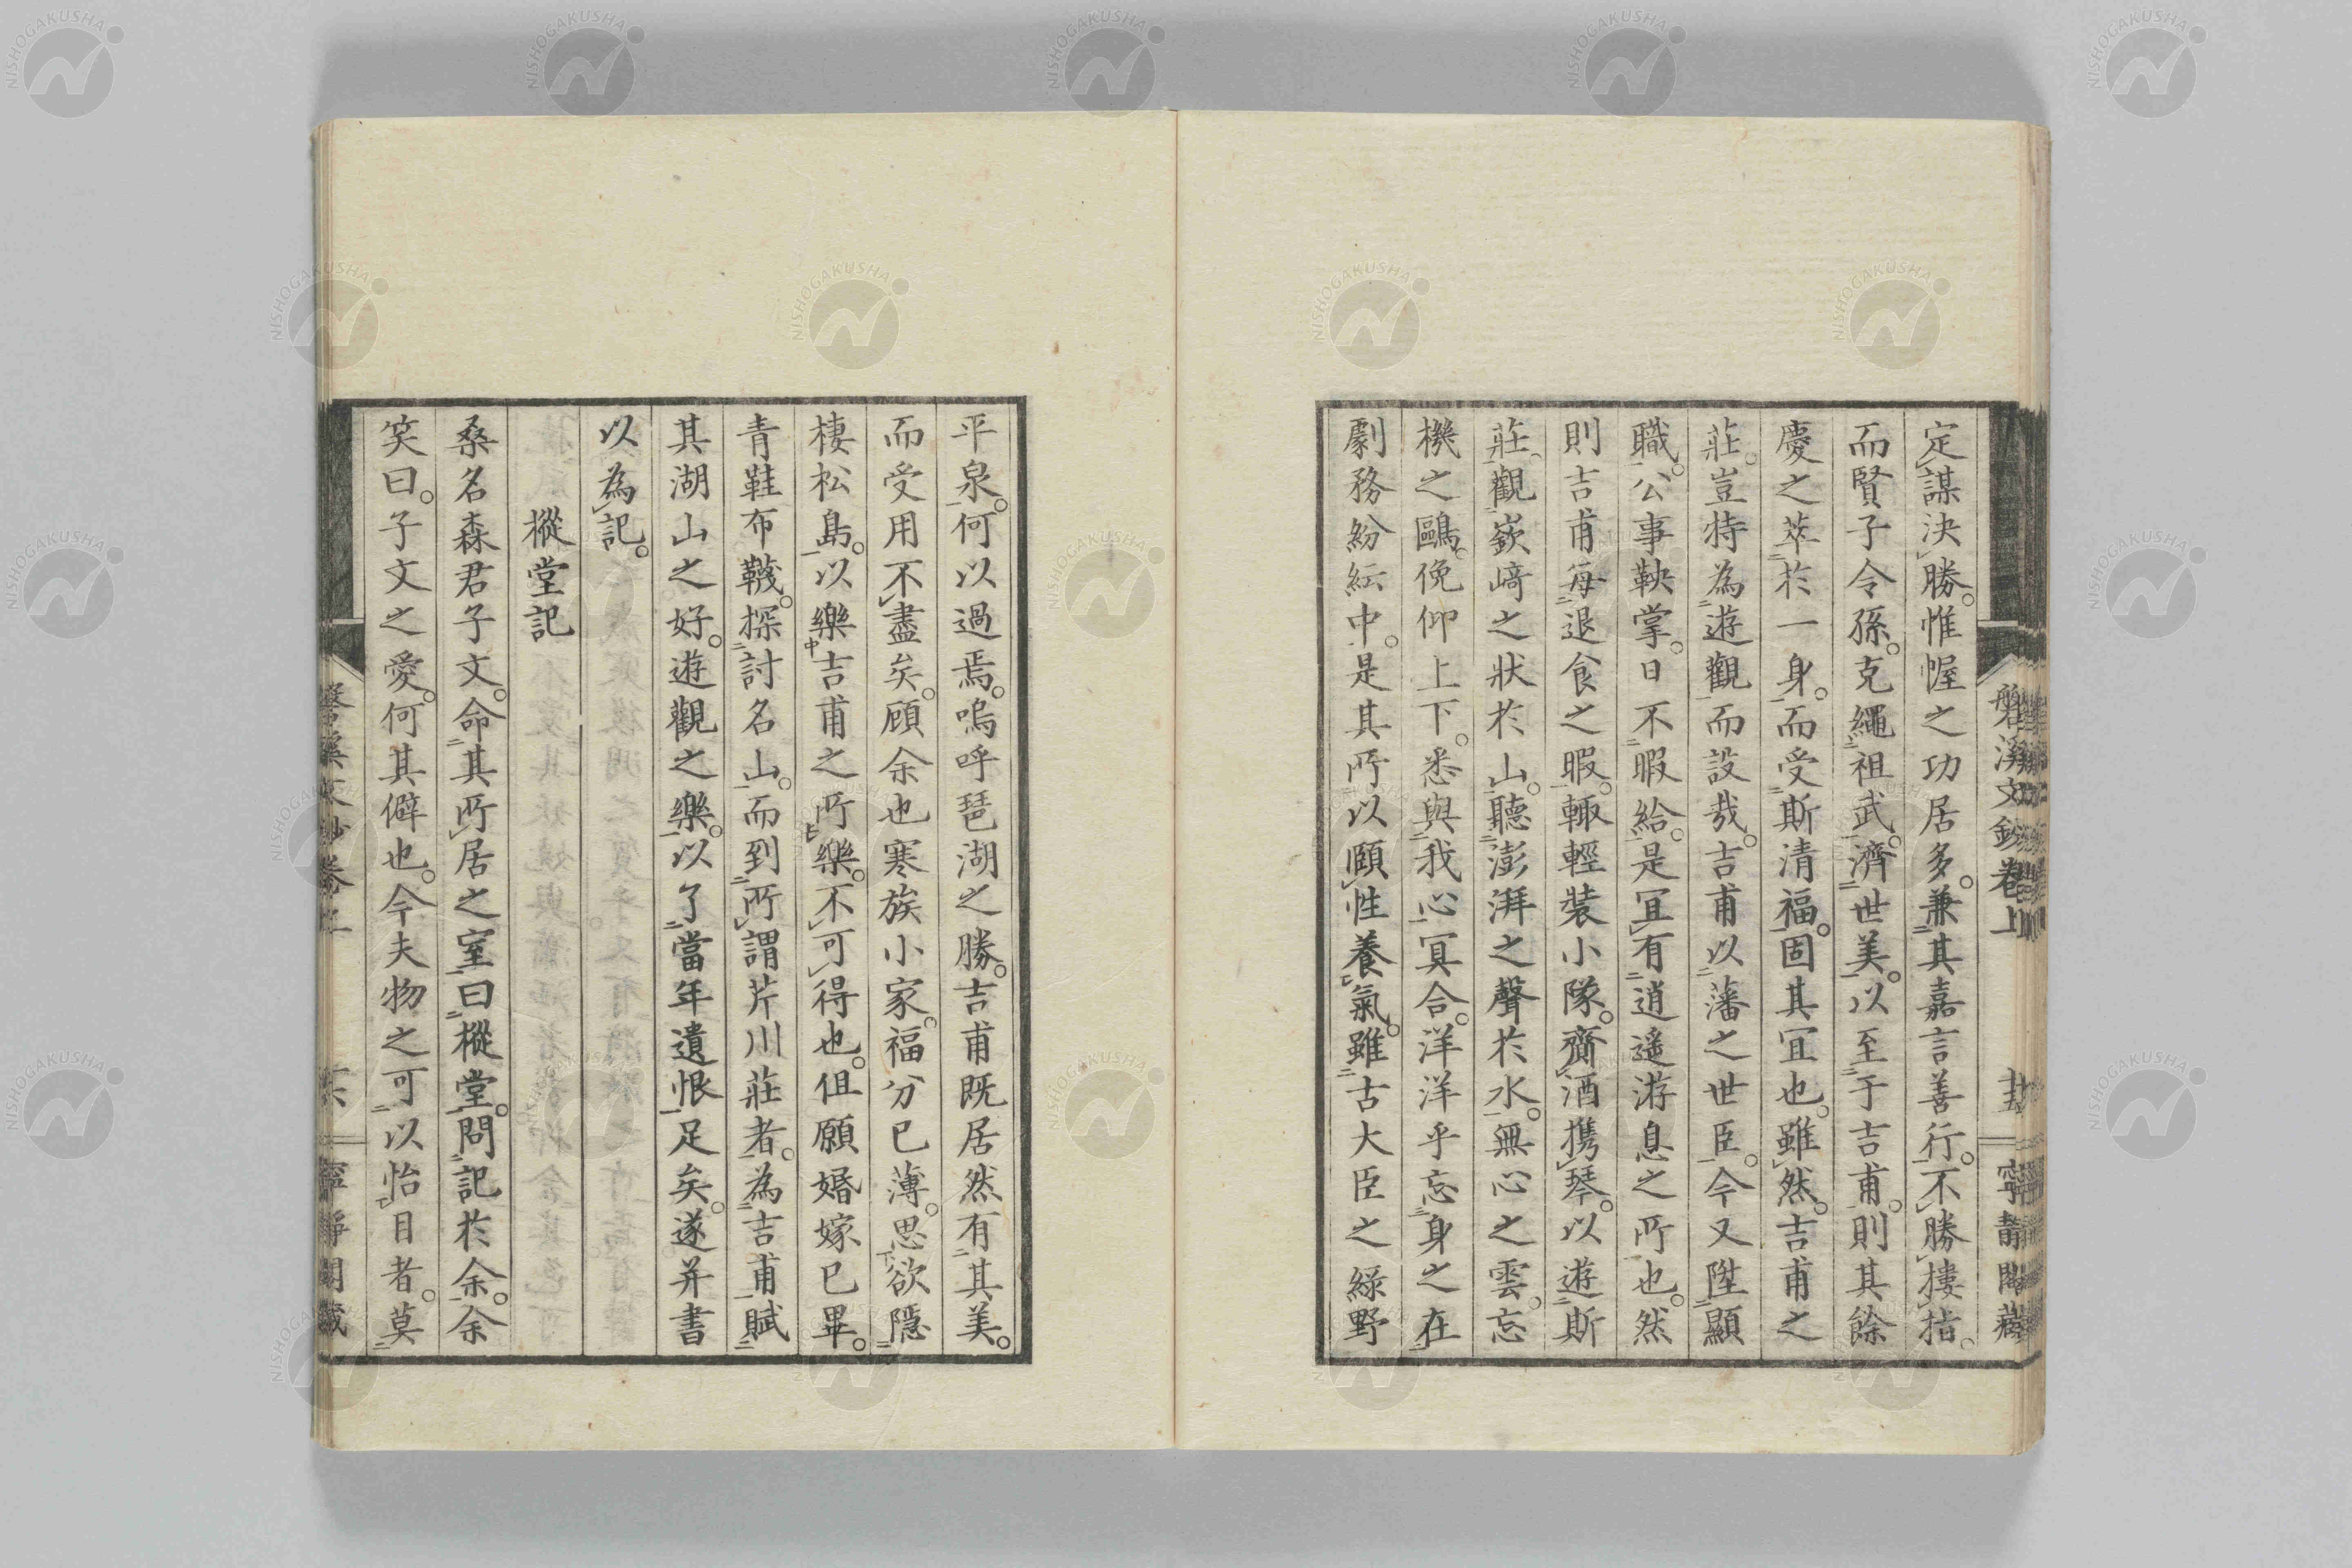 定謀決勝。惟幄之功居多。兼其嘉言善行。不勝摟指。
而賢子令孫。克繩祖武。濟世美。以至于吉甫。則其餘
慶之萃於一身。而受斯清福。固其冝也。雖然。吉甫之
莊。豈特為遊觀而設哉。吉甫以藩之世臣。今又陞顯
職。公事鞅掌。日不暇給。是冝有逍遥游息之所也。然
則吉甫每退食之暇。輙輕裝小隊。齎酒携琴。以遊斯
莊。觀嶔﨑之狀於山。聽澎湃之聲於水。無心之雲。忘
機之鷗。俛仰上下。悉與我心冥合。洋洋乎忘身之在
劇務紛紜中。是其所以頤性養氣。雖古大臣之緑野
平泉。何以過焉。嗚呼琵湖之勝。吉甫既居然有其美。
而受用不盡矣。顧余也寒族小家。福分已薄。思欲隠
棲松島。以樂吉甫之所樂。不可得也。但願婚嫁已畢。
青鞋布韈。探討名山。而到所謂芹川莊者。為吉甫賦
其湖山之好。遊觀之樂。以了當年遺恨足矣。遂并書
以為記。
樅堂記
桑名森君子文。命其所居之室曰樅堂。問記於余。余
笑曰。子文之愛。何其僻也。今夫物之可以怡目者。莫
磐溪文鈔卷上
寧靜閣藏